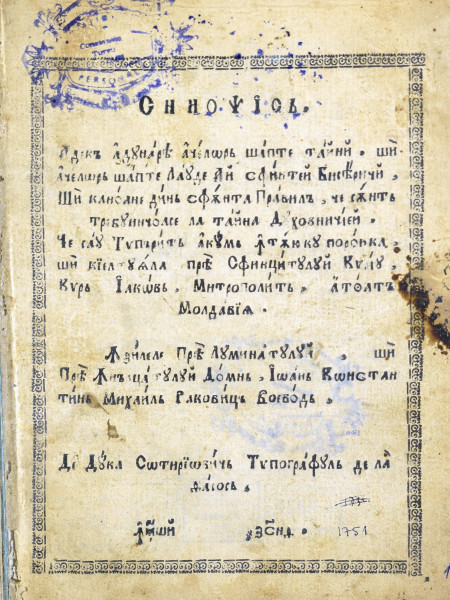 СИНОѰІСЬ.
Адекъ Адꙋнаре ачелѡръ шапте тайнй, шй
ачелѡръ шапте Лаꙋде Ай сфинтей Бисѣричй,
Шй канѡане динь сфѫнта Правилъ, че сѫнть
требꙋинчоасе ла тайна Дꙋховничїей.
Че саꙋ Тѵпърить акꙋмь ꙟтѫюкꙋ порꙋнка,
шй кїелтꙋѧла прѣ Сфинцитꙋлꙋй
Кѵрь Іакѡвь, Митрополить, атоатъ
Молдавїѧ.
Ꙟзилеле Прѣ Лꙋминатꙋлꙋй, шй
Прѣ Ꙟнълцатꙋлꙋй Домнь, Іѡань Кѡнстан
тинь Михаиль Раковицъ Воеводь,
Де Дꙋка Сѡтирїѡвичь Тѵпографꙋль де ла
Ѳасось.
1751